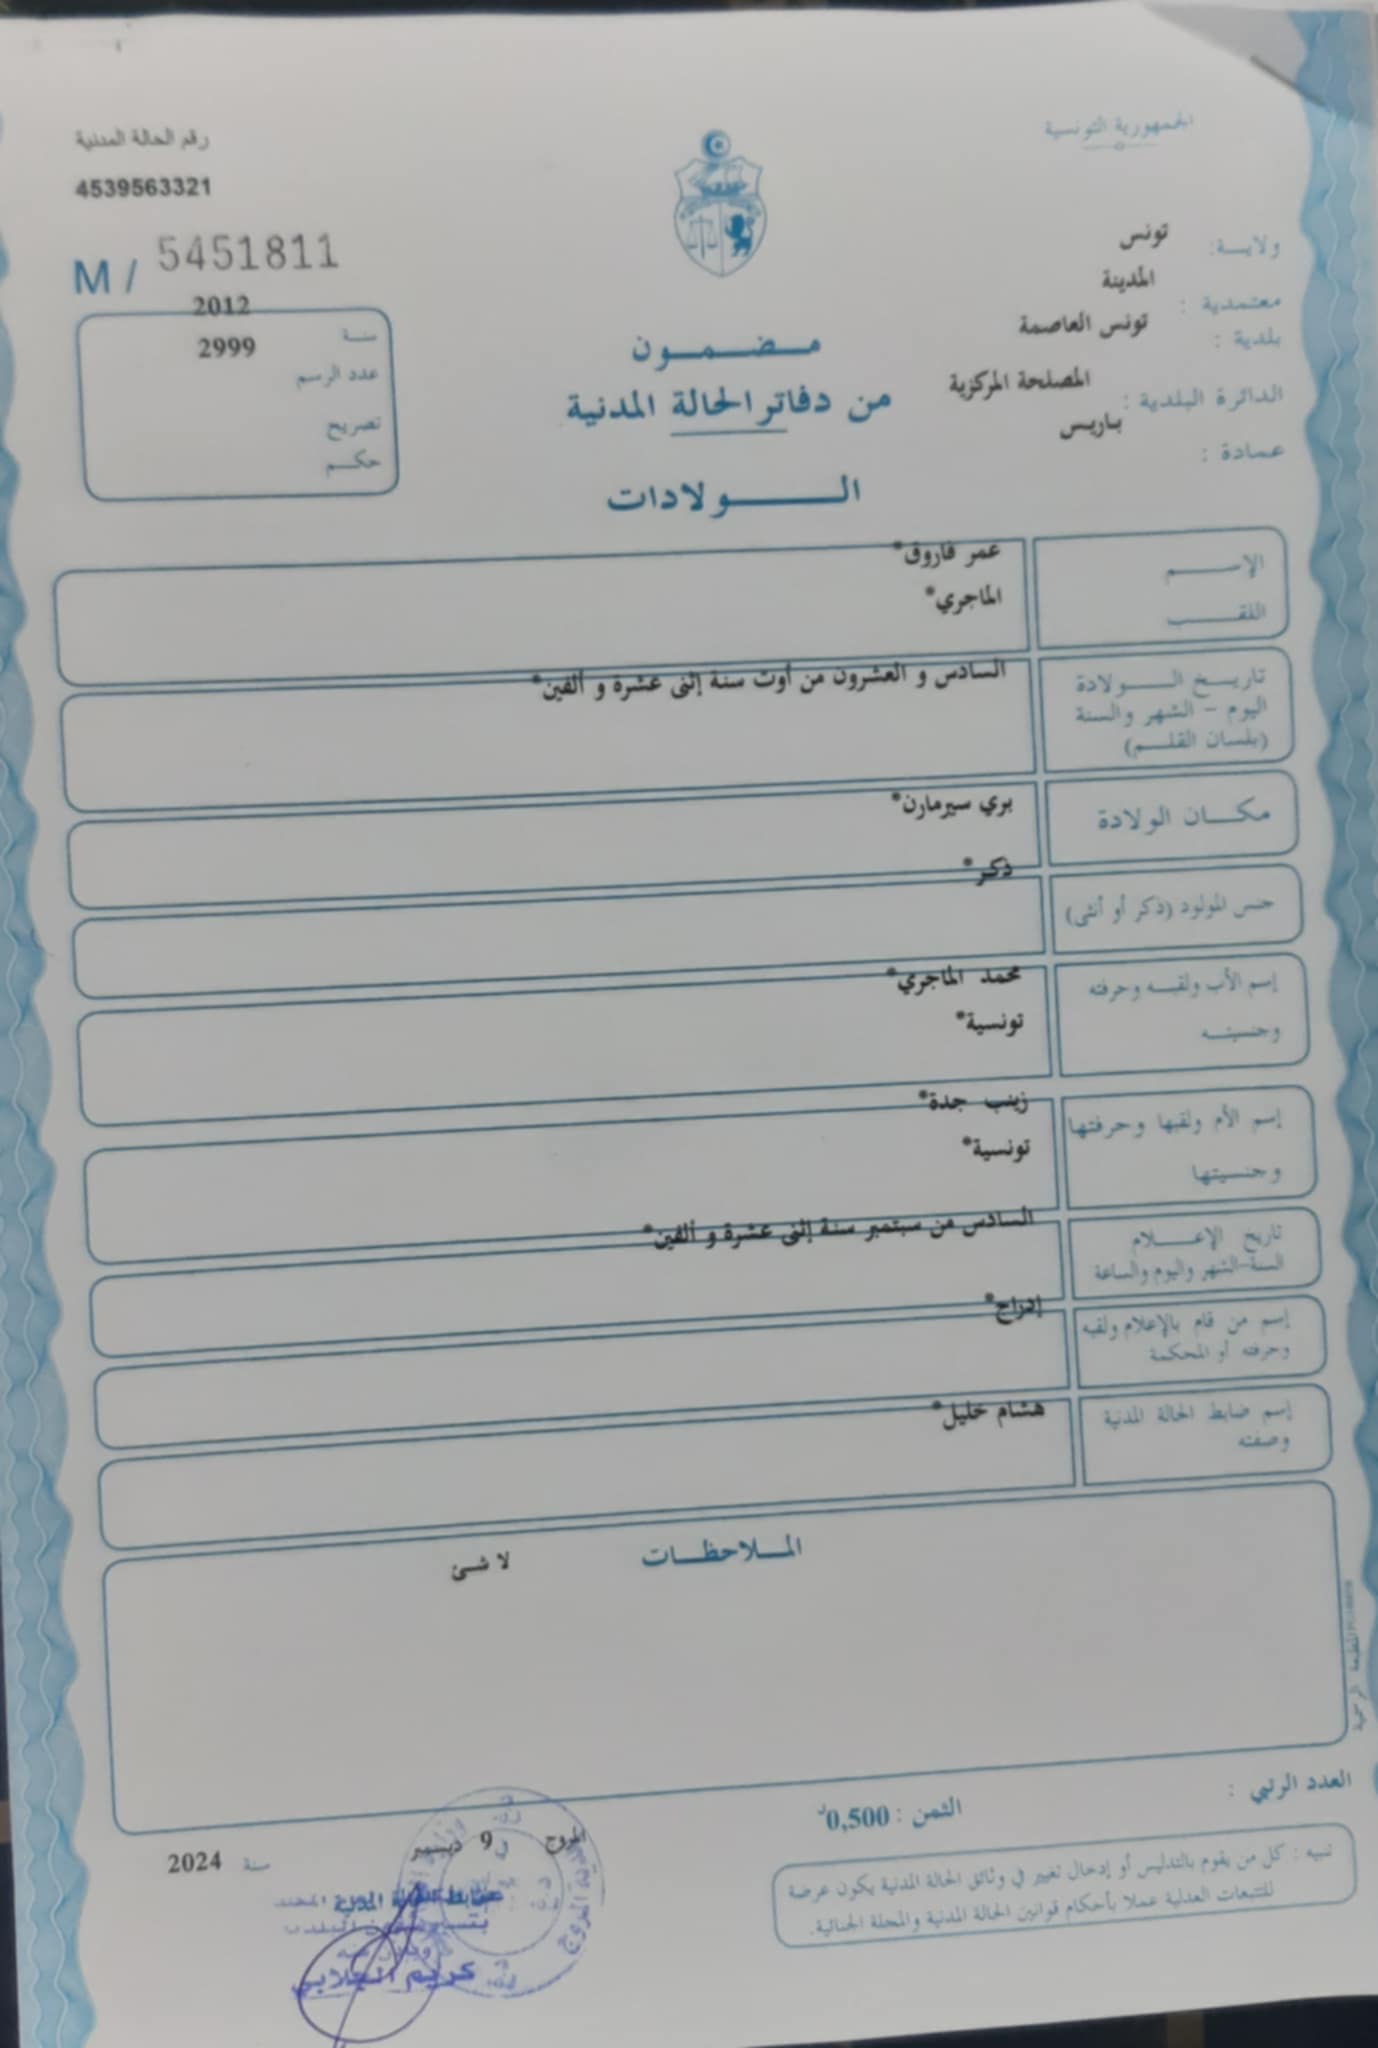 الجمهورية التونسية
رقم الحالة المدنية
4539563321
M / 5451811
ولايــة: تونس
معتمدية : المدينة
بلدية : تونس العاصمة
الدائرة البلدية : المصلحة المركزية
عمادة : باريس
سنة 2012
عدد الرسم 2999
تصريح
حكم
مضمون
من دفاتر الحالة المدنية
الولادات
الإسم عمر فاروق*
اللقب الماجري*
تاريخ الولادة السادس و العشرون من أوت سنة إثنى عشرة و ألفين*
اليوم - الشهر والسنة
(بلسان القلم)
مكان الولادة بري سيرمارن*
جنس المولود (ذكر أو أنثى) ذكر*
إسم الأب ولقبه وحرفته محمد الماجري*
وجنسيته تونسية*
إسم الأم ولقبها وحرفتها زينب جدة*
وجنسيتها تونسية*
تاريخ الإعلام السادس من سبتمبر سنة إثنى عشرة و ألفين*
السنة-الشهر واليوم والساعة
إسم من قام بالإعلام ولقبه إدراج*
وحرفته أو المحكمة
إسم ضابط الحالة المدنية هشام خليل*
وصفته
الملاحظات
لا شئ
العدد الرتبي :
الثمن : 0,500د
تنبيه : كل من يقوم بالتدليس أو إدخال تغيير في وثائق الحالة المدنية يكون عرضة
للتتبعات العدلية عملا بأحكام قوانين الحالة المدنية والمجلة الجنائية.
المروج 9 ديسمبر سنة 2024
ضابط الحالة المدنية
كريم الجلابي